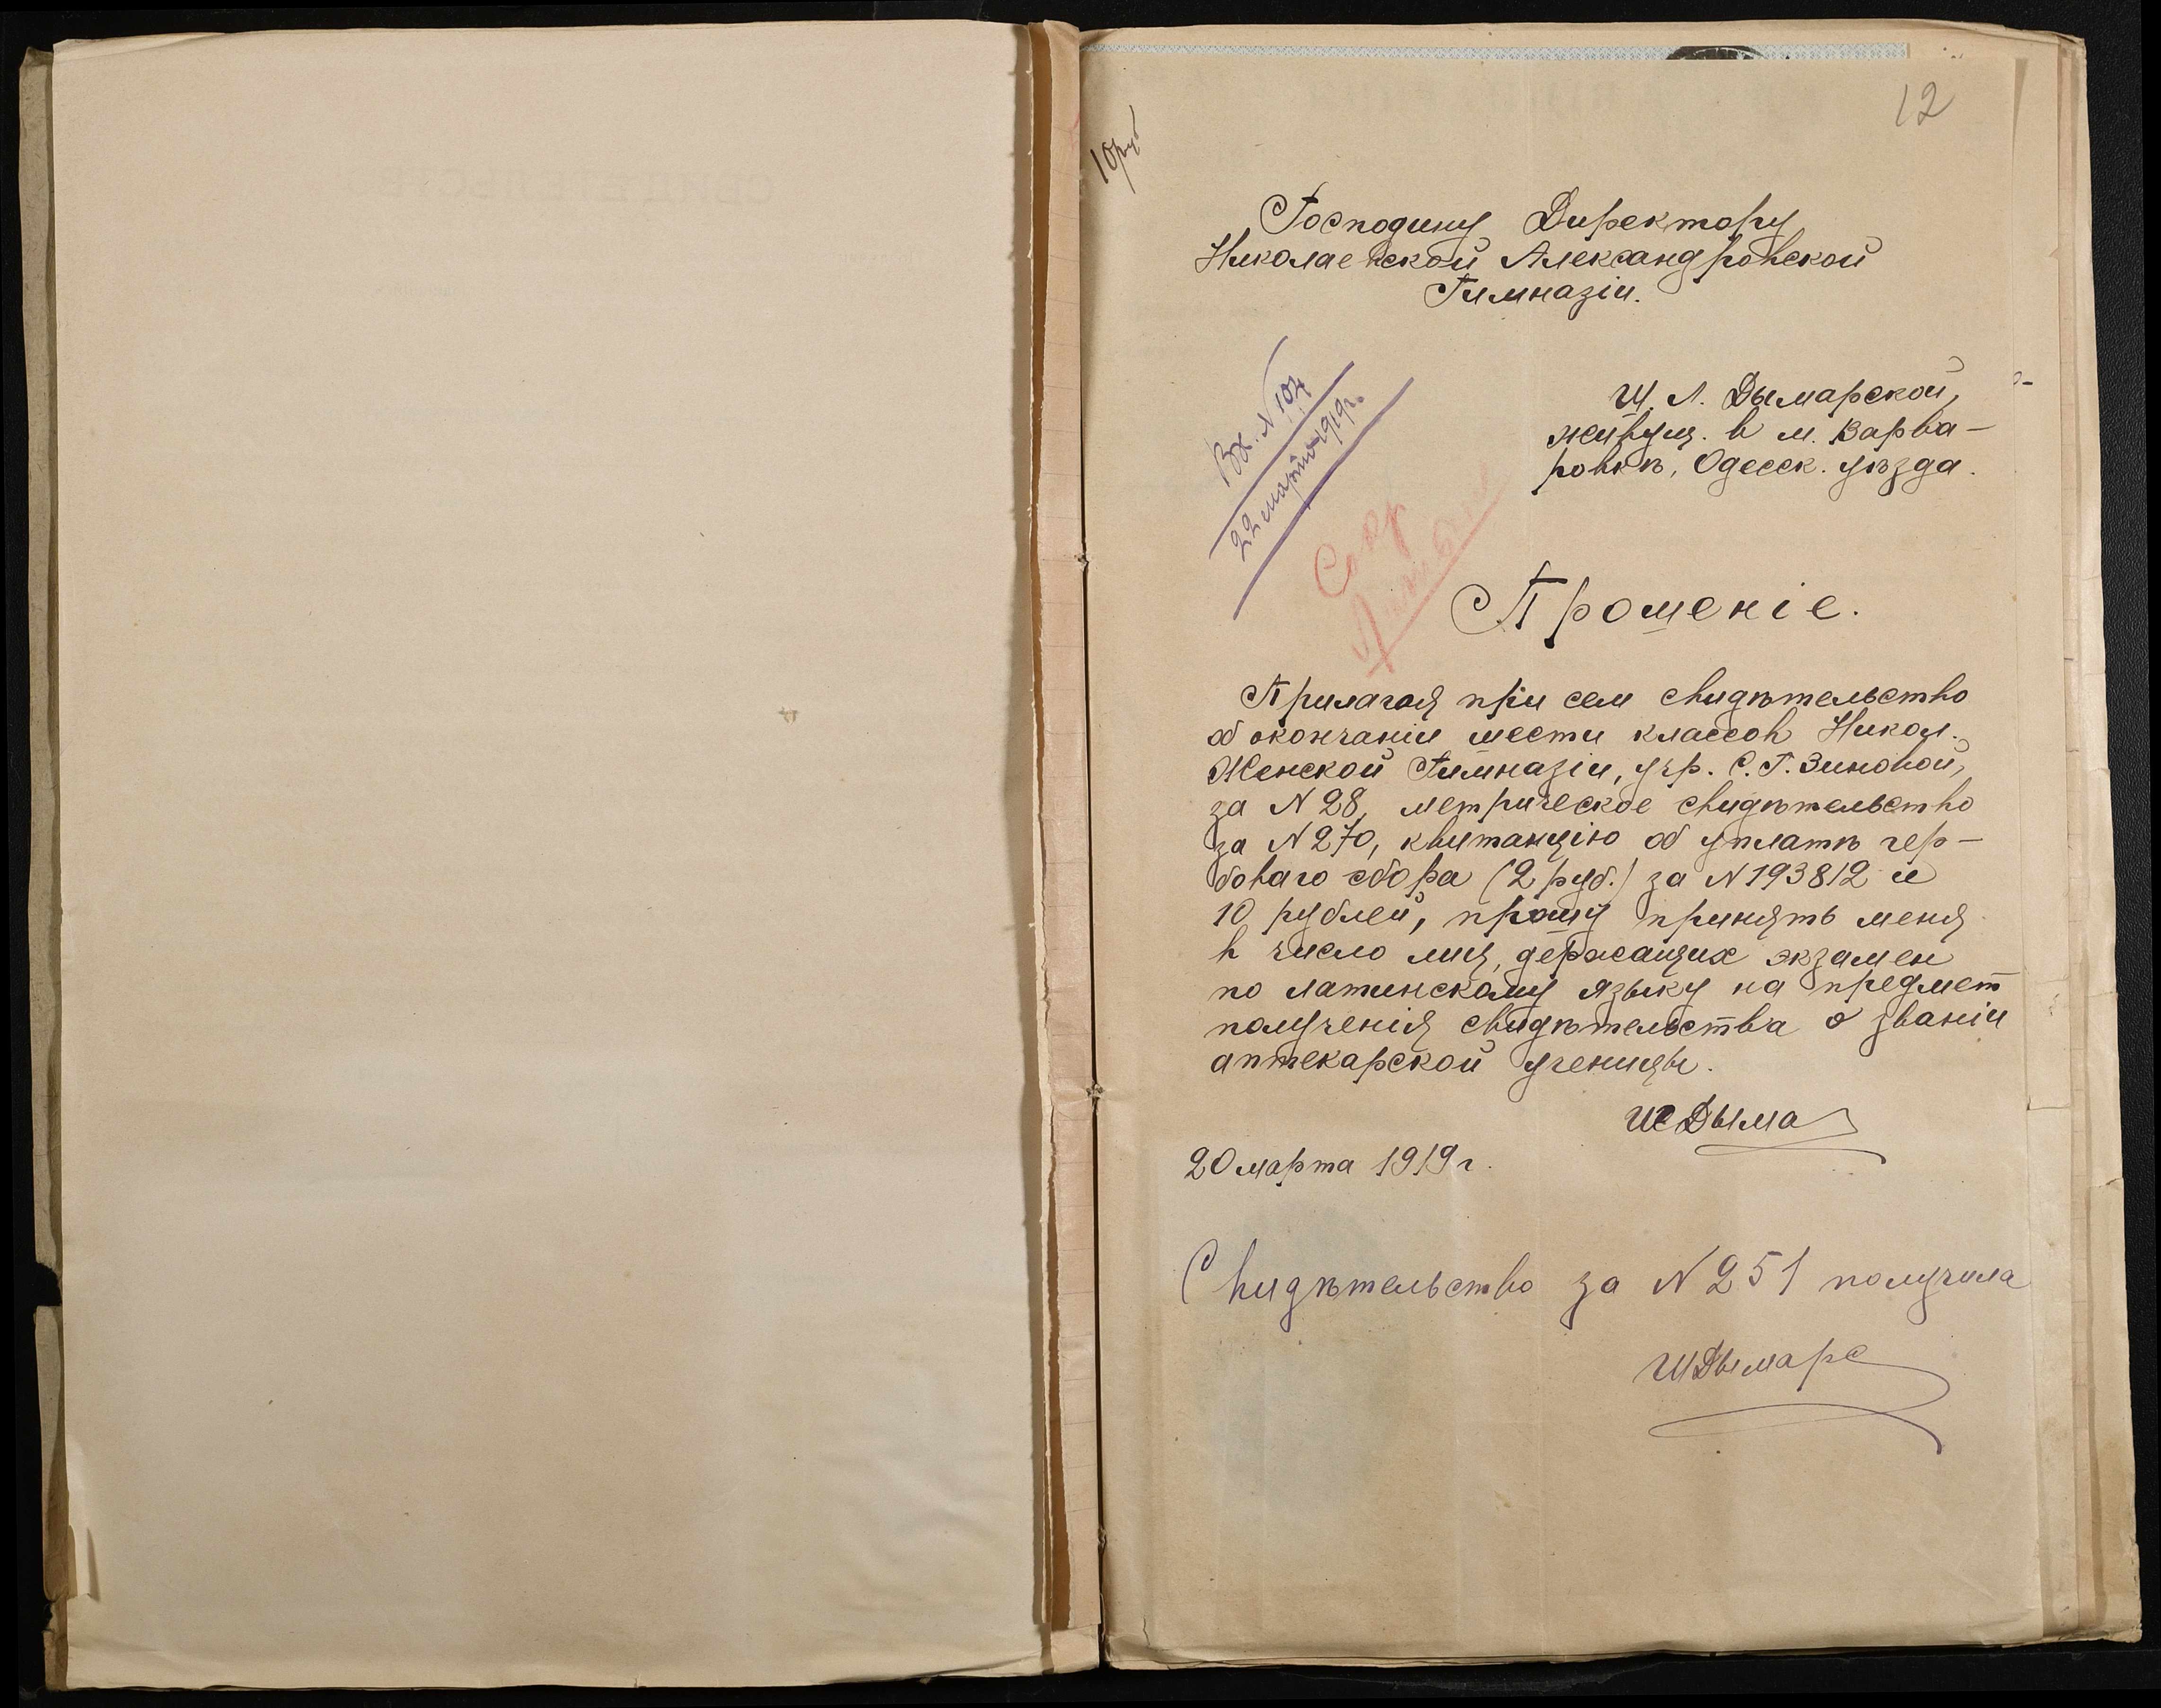 12
10 руб
Господину Директору
Николаевской Александровской
Гимназіи.
Ш. Л. Дымарской,
живущ. в м. Варва-
ровкѣ, Одесск. уѣзда.
Вх. N 104
22 марта 1919 г.
Прошеніе.
Прилагая при сем свидѣтельство
об окончаніи шести классов Никол.
Женской Гимназіи, учр. С. Г. Зиновой,
за N 28, метрическое свидѣтельство
за N 270, квитанцію об уплатѣ гер-
боваго сбора (2 руб.) за N 193812 и
10 рублей, прошу принять меня
в число лиц, держащих экзамен
по латинскому языку на предмет
полученія свидѣтельства о званіи
аптекарской ученицы.
Ш Дыма
20 марта 1919 г.
Свидѣтельство за N 251 получила
Ш Дымарс